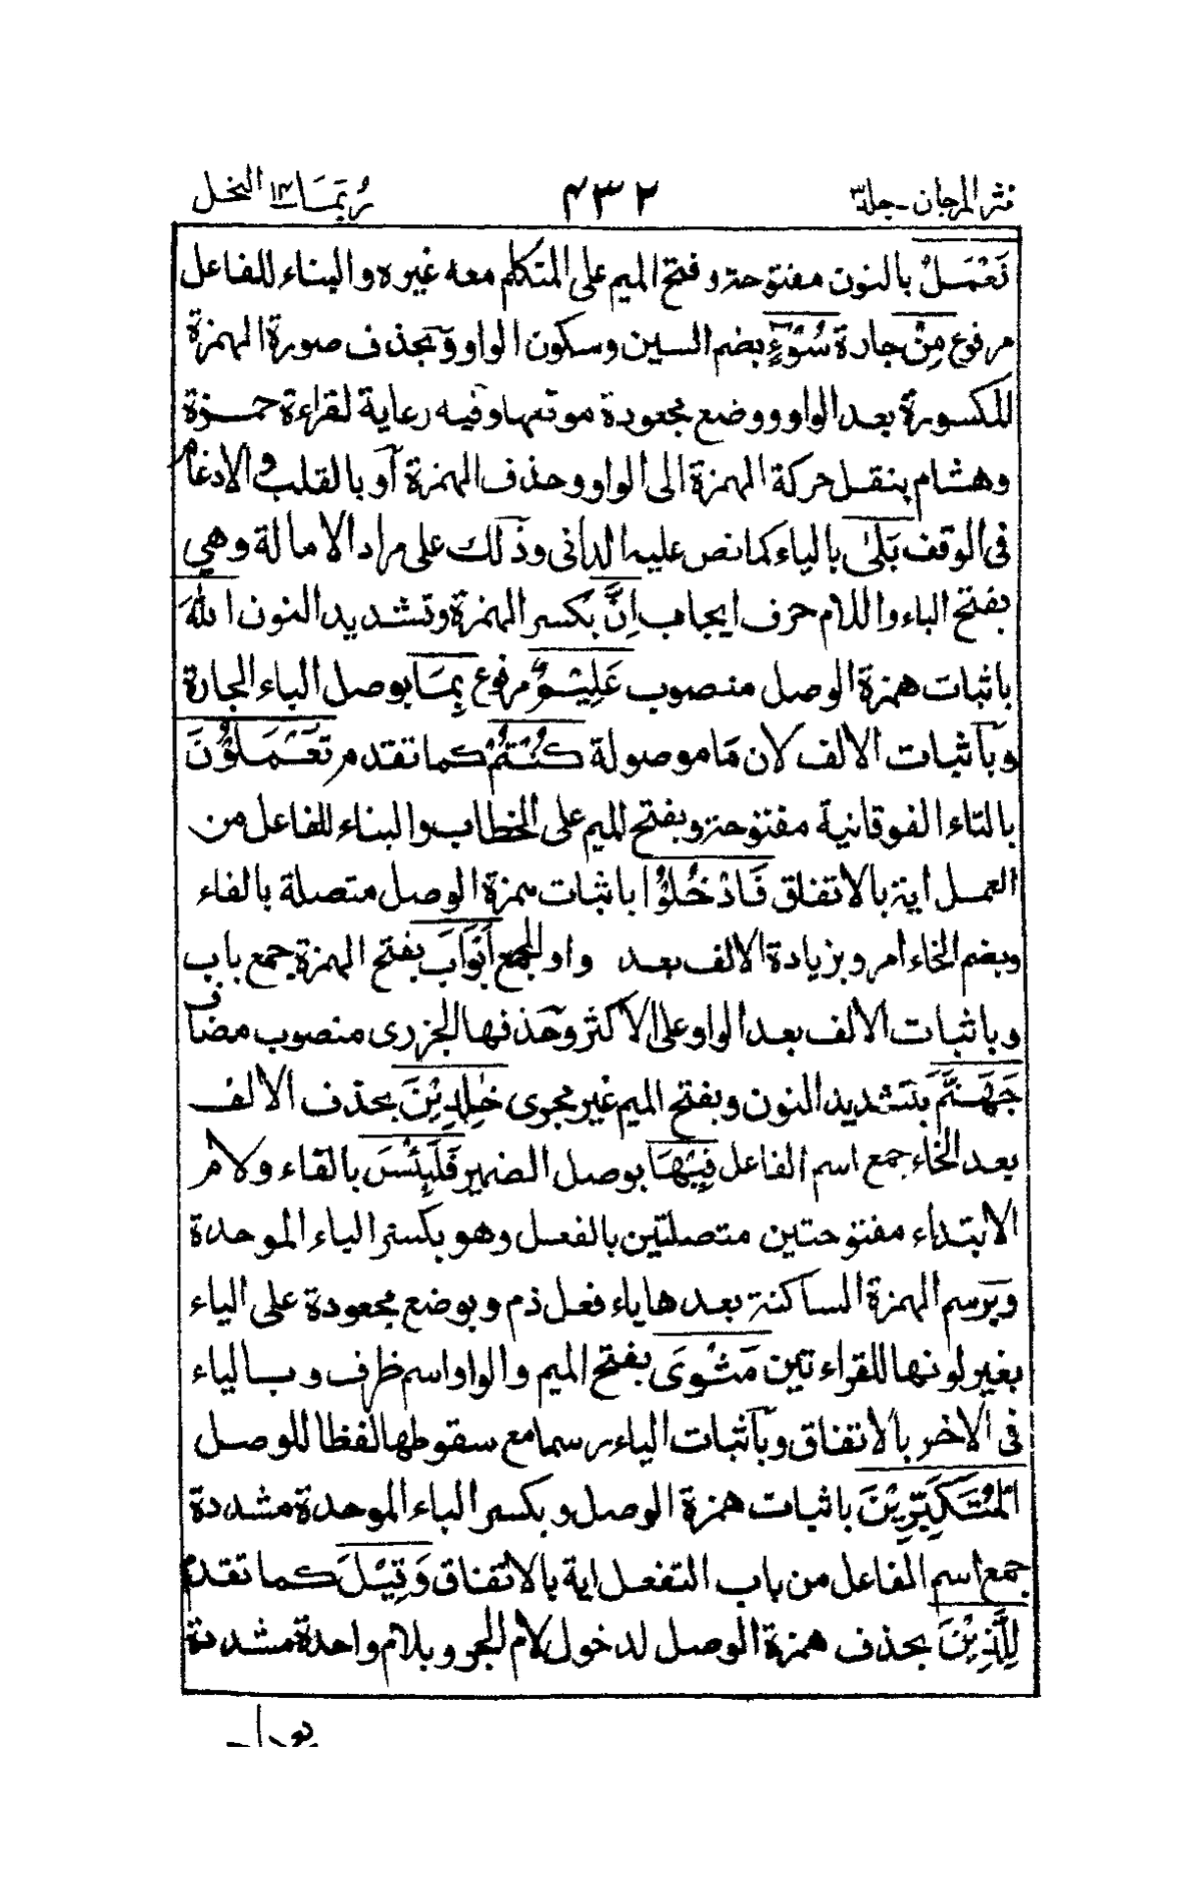 نثر المرجان - جلد٣ ٤٣٢ ربما ١٤ النخل
نَعْمَلُ بالنون مفتوحة وفتح الميم على المتكلم معه غيره والبناء للفاعل
مرفوع مِنْ جارة سُوْٓءٍ بضم السين وسكون الواو وبحذف صورة الهمزة
المكسورة بعد الواو ووضع مجعودة موقعها وفيه رعاية لقراءة حمزة
وهشام بنقل حركة الهمزة الى الواو وحذف الهمزة أو بالقلب والادغام
فى الوقف بَلٰى بالياء كما نص عليه الدانى وذلك على مراد الامالة وهي
بفتح الباء واللام حرف ايجاب اِنَّ بكسر الهمزة وتشديد النون اللهَ
باثبات همزة الوصل منصوب عَلِيْمٌ مرفوع بِمَا بوصل الباء الجارة
وبآثبات الالف لان مَا موصولة كُنْتُمْ كما تقدم تَعْمَلُوْنَ
بالتاء الفوقانية مفتوحة وبفتح الميم على الخطاب والبناء للفاعل من
العمل اية بالاتفاق فَادْخُلُوْا باثبات همزة الوصل متصلة بالفاء
وبضم الخاء امر وبزيادة الالف بعد واو الجمع اَبْوَابَ بفتح الهمزة جمع باب
وباثبات الالف بعد الواو على الاكثر وحذفها الجزرى منصوب مضاف
جَهَنَّمَ بتشديد النون وبفتح الميم غير مجرى خٰلِدِيْنَ بحذف الالف
بعد الخاء جمع اسم الفاعل فِيْهَا بوصل الضمير فَلَبِئْسَ بالفاء ولام
الابتداء مفتوحتين متصلتين بالفعل وهو بكسر الباء الموحدة
وبرسم الهمزة الساكنة بعدها ياء فعل ذم وبوضع مجعودة على الياء
بغير لونها للقراءتين مَثْوَى بفتح الميم والواو اسم ظرف وبالياء
فى الاخر بالاتفاق وبآثبات الياء رسما مع سقوطها لفظا للوصل
الْمُتَكَبِّرِيْنَ باثبات همزة الوصل وبكسر الباء الموحدة مشددة
جمع اسم الفاعل من باب التفعل اية بالاتفاق وَقِيْلَ كما تقدم
لِلَّذِيْنَ بحذف همزة الوصل لدخول لام الجر وبلام واحدة مشددة